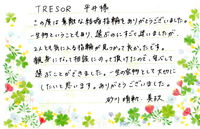 TRESOR 平井様
この度は素敵な結婚指輪をありがとうございました。
一生物ということもあり、選ぶのにすごく迷いましたが、
2人とも気に入る指輪が見つかって良かったです。
親身になって相談にのって頂けたので、安心して
選ぶことができました。一生の宝物として大切に
したいと思います。ありがとうございました。